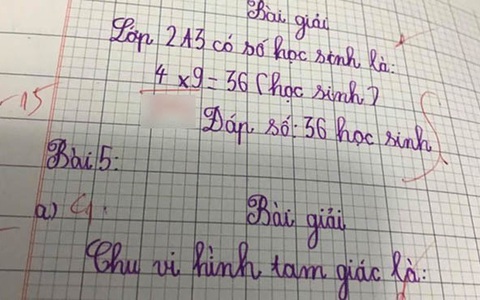 Bài giải
Lớp 2A3 có số học sinh là:
4 x 9 = 36 (học sinh)
Đáp số: 36 học sinh
Bài 5:
a)
Bài giải
Chu vi hình tam giác là: